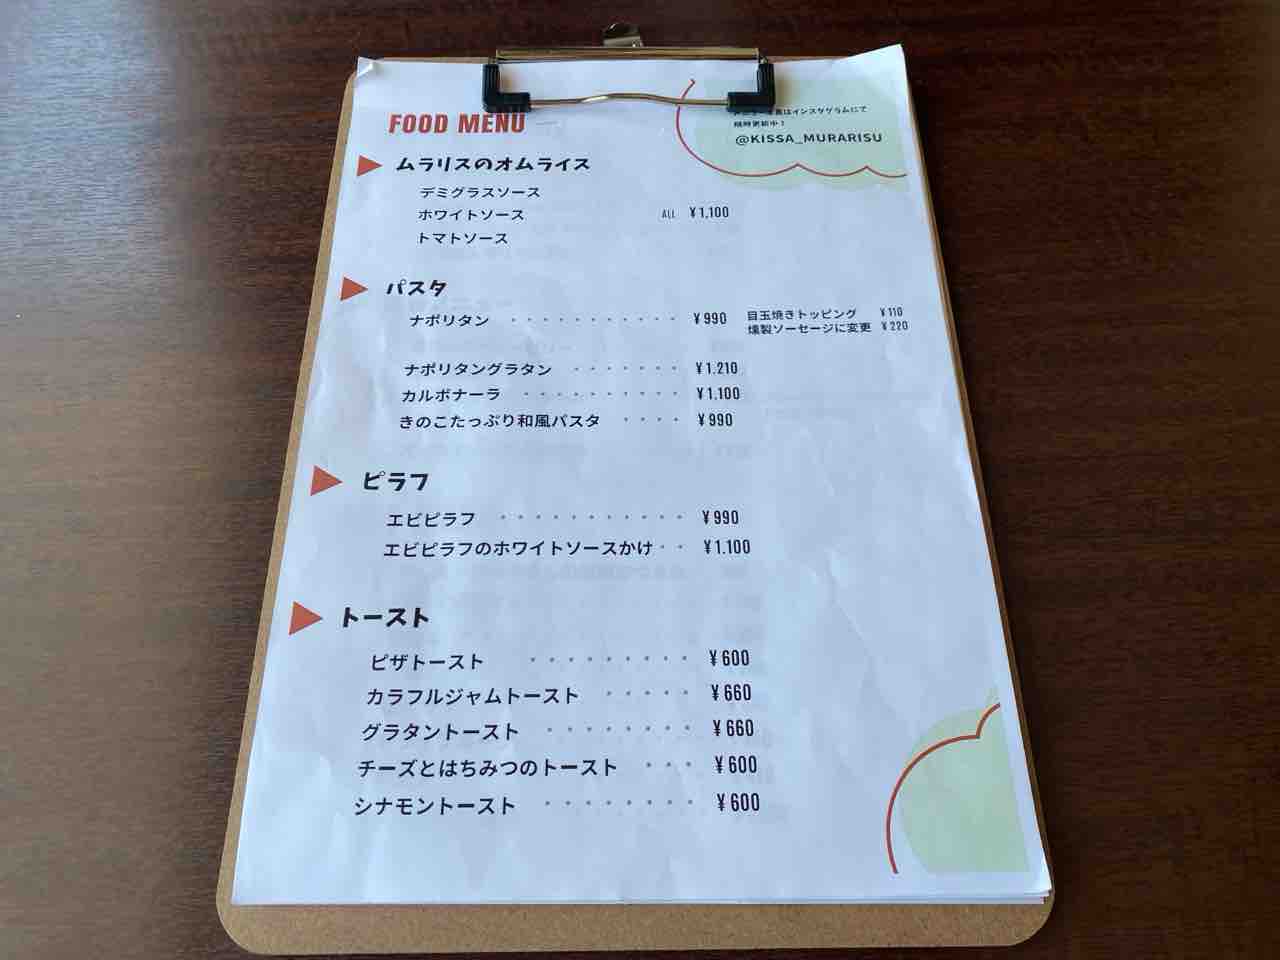 FOOD MENU
はインスタグラムにて
随時更新中！
@KISSA_MURARISU
ムラリスのオムライス
デミグラスソース
ホワイトソース ALL ¥1,100
トマトソース
パスタ
ナポリタン ・・・・・・・・・・・ ¥990 目玉焼きトッピング ¥110
燻製ソーセージに変更 ¥220
ナポリタングラタン ・・・・・・・ ¥1.210
カルボナーラ ・・・・・・・・・・ ¥1.100
きのこたっぷり和風パスタ ・・・・ ¥990
ピラフ
エビピラフ ・・・・・・・・・・・ ¥990
エビピラフのホワイトソースかけ・・ ¥1.100
トースト
ピザトースト ・・・・・・・・・ ¥600
カラフルジャムトースト ・・・・・ ¥660
グラタントースト ・・・・・・・・ ¥660
チーズとはちみつのトースト ・・・ ¥600
シナモントースト ・・・・・・・・ ¥600